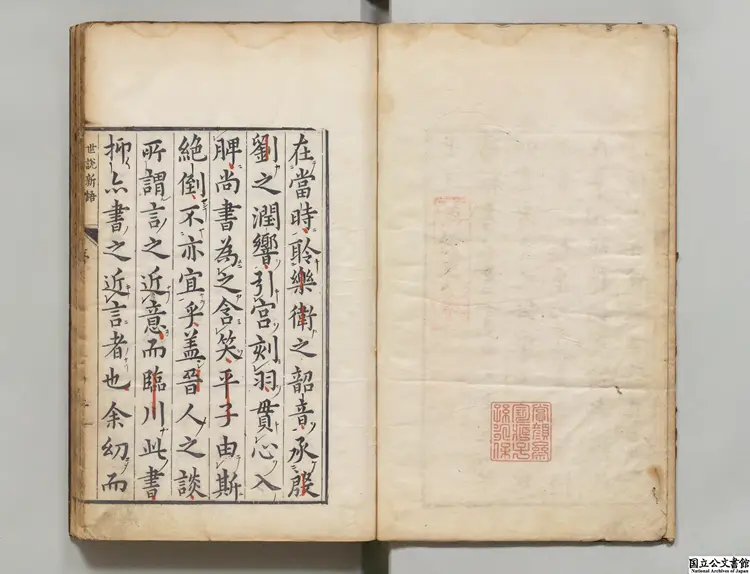 在當時聆樂衛之韶音承殷
劉之潤響引宮刻羽貫心入
脾尚書為之含笑平子由斯
絶倒不亦宜乎盖晉人之談
所謂言之近意而臨川此書
抑亦書之近言者也余幼而
世說新語
国立公文書館
National Archives of Japan